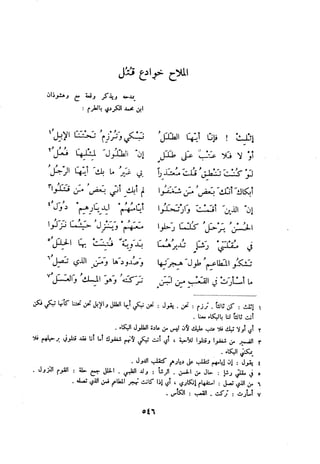 الملاح خوادع قتل
يمدحه ويذكر وقعة مع وهشوذان
ابن محمد الكردي بالطرم :
إثلث ! فإنا أيها الطلل نبكي وترزم تحتنا الإبل ١
أو لا فلا عتب على طلل إن الطلول لمثلها فعل ٢
لو كنت تنطق قلت معتذرا بي غير ما بك أيها الرجل
أبكاك أنك بعض من شغفوا لم أبك أني بعض من قتلوا ٣
إن الذين أقمت وارتحلوا أيامهم لديارهم دول ٤
الحسن يرحل كلما رحلوا معهم وينزل حيثما نزلوا
في مقلتي رشإ تديرهما بدوية فتنت بها الحلل ٥
تشكو المطاعم طول هجرتها وصدودها ومن الذي تصل ٦
ما أسأرت في القعب من لبن تركته وهو المسك والعسل ٧
١ إثلث : كن ثالثاً . ترزم : تحن . يقول : نحن نبكي أيها الطلل والإبل تحن تحتنا كأنها تبكي فكن
أنت ثالثاً لنا بالبكاء معنا .
٢ أي أولا تبك فلا عتب عليك لأن ليس من عادة الطلول البكاء .
٣ الضمير من شغفوا وقتلوا للأحبة ، أي أنت تبكي لأنهم شغفوك أما أنا فقد قتلوني برحيلهم فلا
يمكني البكاء .
٤ يقول : إن أيامهم تتقلب على ديارهم كتقلب الدول .
٥ في مقلتي رشإ : حال من الحسن . الرشأ : ولد الظبي . الحلل جمع حلة : القوم النزول .
٦ من الذي تصل : استفهام إنكاري ، أي إذا كانت تهجر المطاعم فمن الذي تصله .
٧ أسأرت : تركت . القعب : الكأس .
٥٤٦